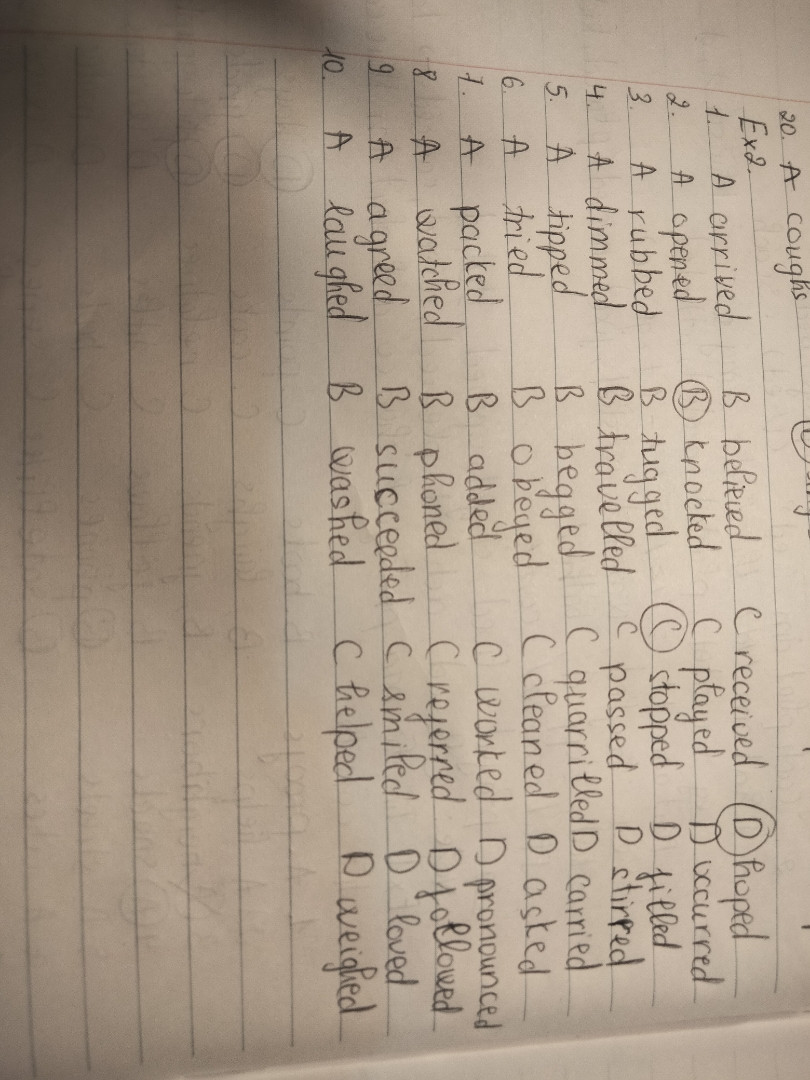 20. A coughs
Ex2.
1. A arrived B believed C received D hoped
2. A opened B knocked C played D occurred
3 A rubbed B tugged C stopped D filled
4. A dimmed B travelled C passed D stirred
5. A tipped B begged C quarrilled D carried
6. A tried B obeyed C cleaned D asked
7. A packed B added C worked D pronounced
8 A watched B phoned C referred D followed
9 A agreed B succeeded C smiled D loved
10. A laughed B washed C helped D weighed